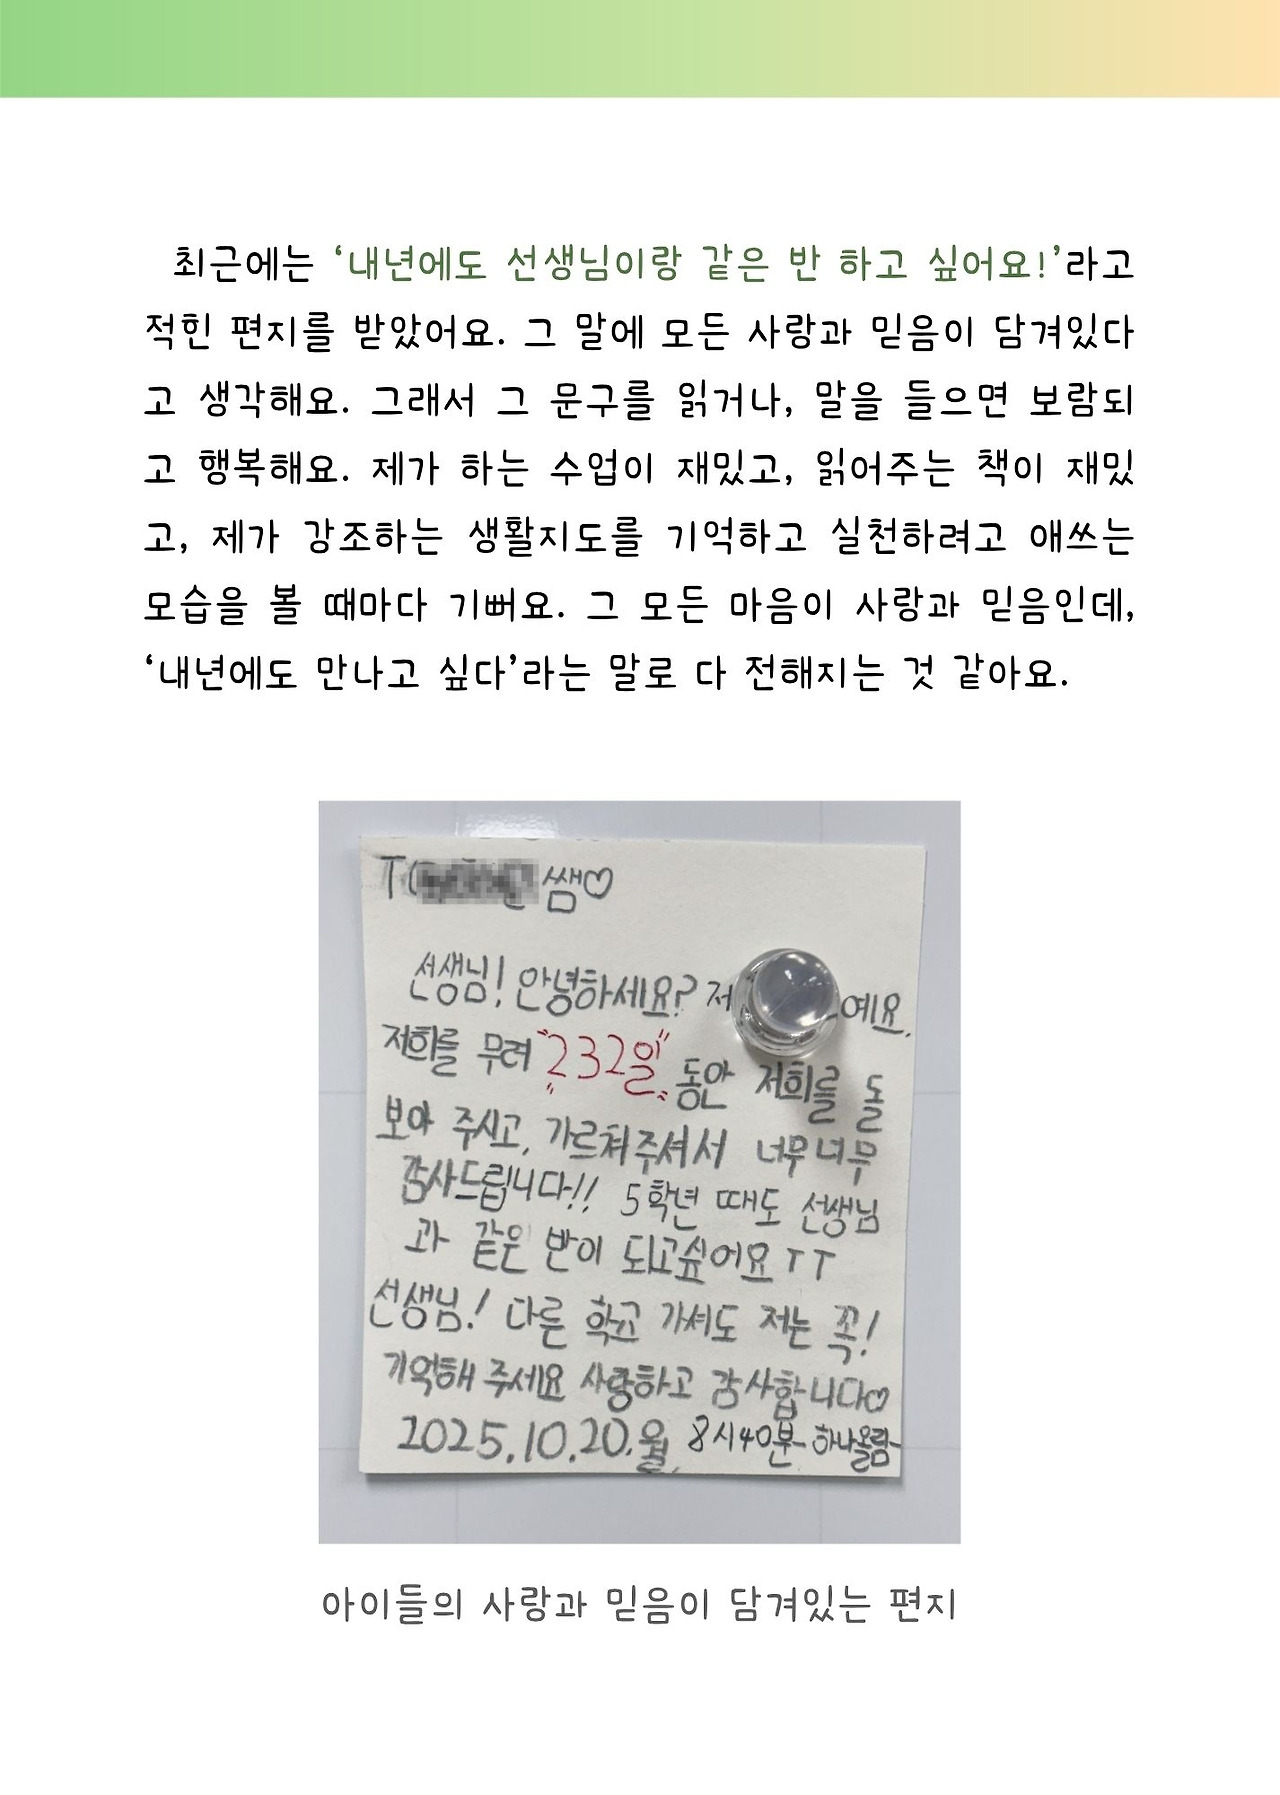 최근에는 ‘내년에도 선생님이랑 같은 반 하고 싶어요!’라고
적힌 편지를 받았어요. 그 말에 모든 사랑과 믿음이 담겨있다
고 생각해요. 그래서 그 문구를 읽거나, 말을 들으면 보람되
고 행복해요. 제가 하는 수업이 재밌고, 읽어주는 책이 재밌
고, 제가 강조하는 생활지도를 기억하고 실천하려고 애쓰는
모습을 볼 때마다 기뻐요. 그 모든 마음이 사랑과 믿음인데,
‘내년에도 만나고 싶다’라는 말로 다 전해지는 것 같아요.
쌤♡
선생님! 안녕하세요? 저 예요.
저희를 무려 "232일" 동안 저희를 돌
보아 주시고, 가르쳐주셔서 너무너무
감사드립니다!! 5학년 때도 선생님
과 같은 반이 되고싶어요 TT
선생님! 다른 학교 가셔도 저는 꼭!
기억해 주세요 사랑하고 감사합니다♡
2025.10.20.월. 8시40분- 하나올림-
아이들의 사랑과 믿음이 담겨있는 편지